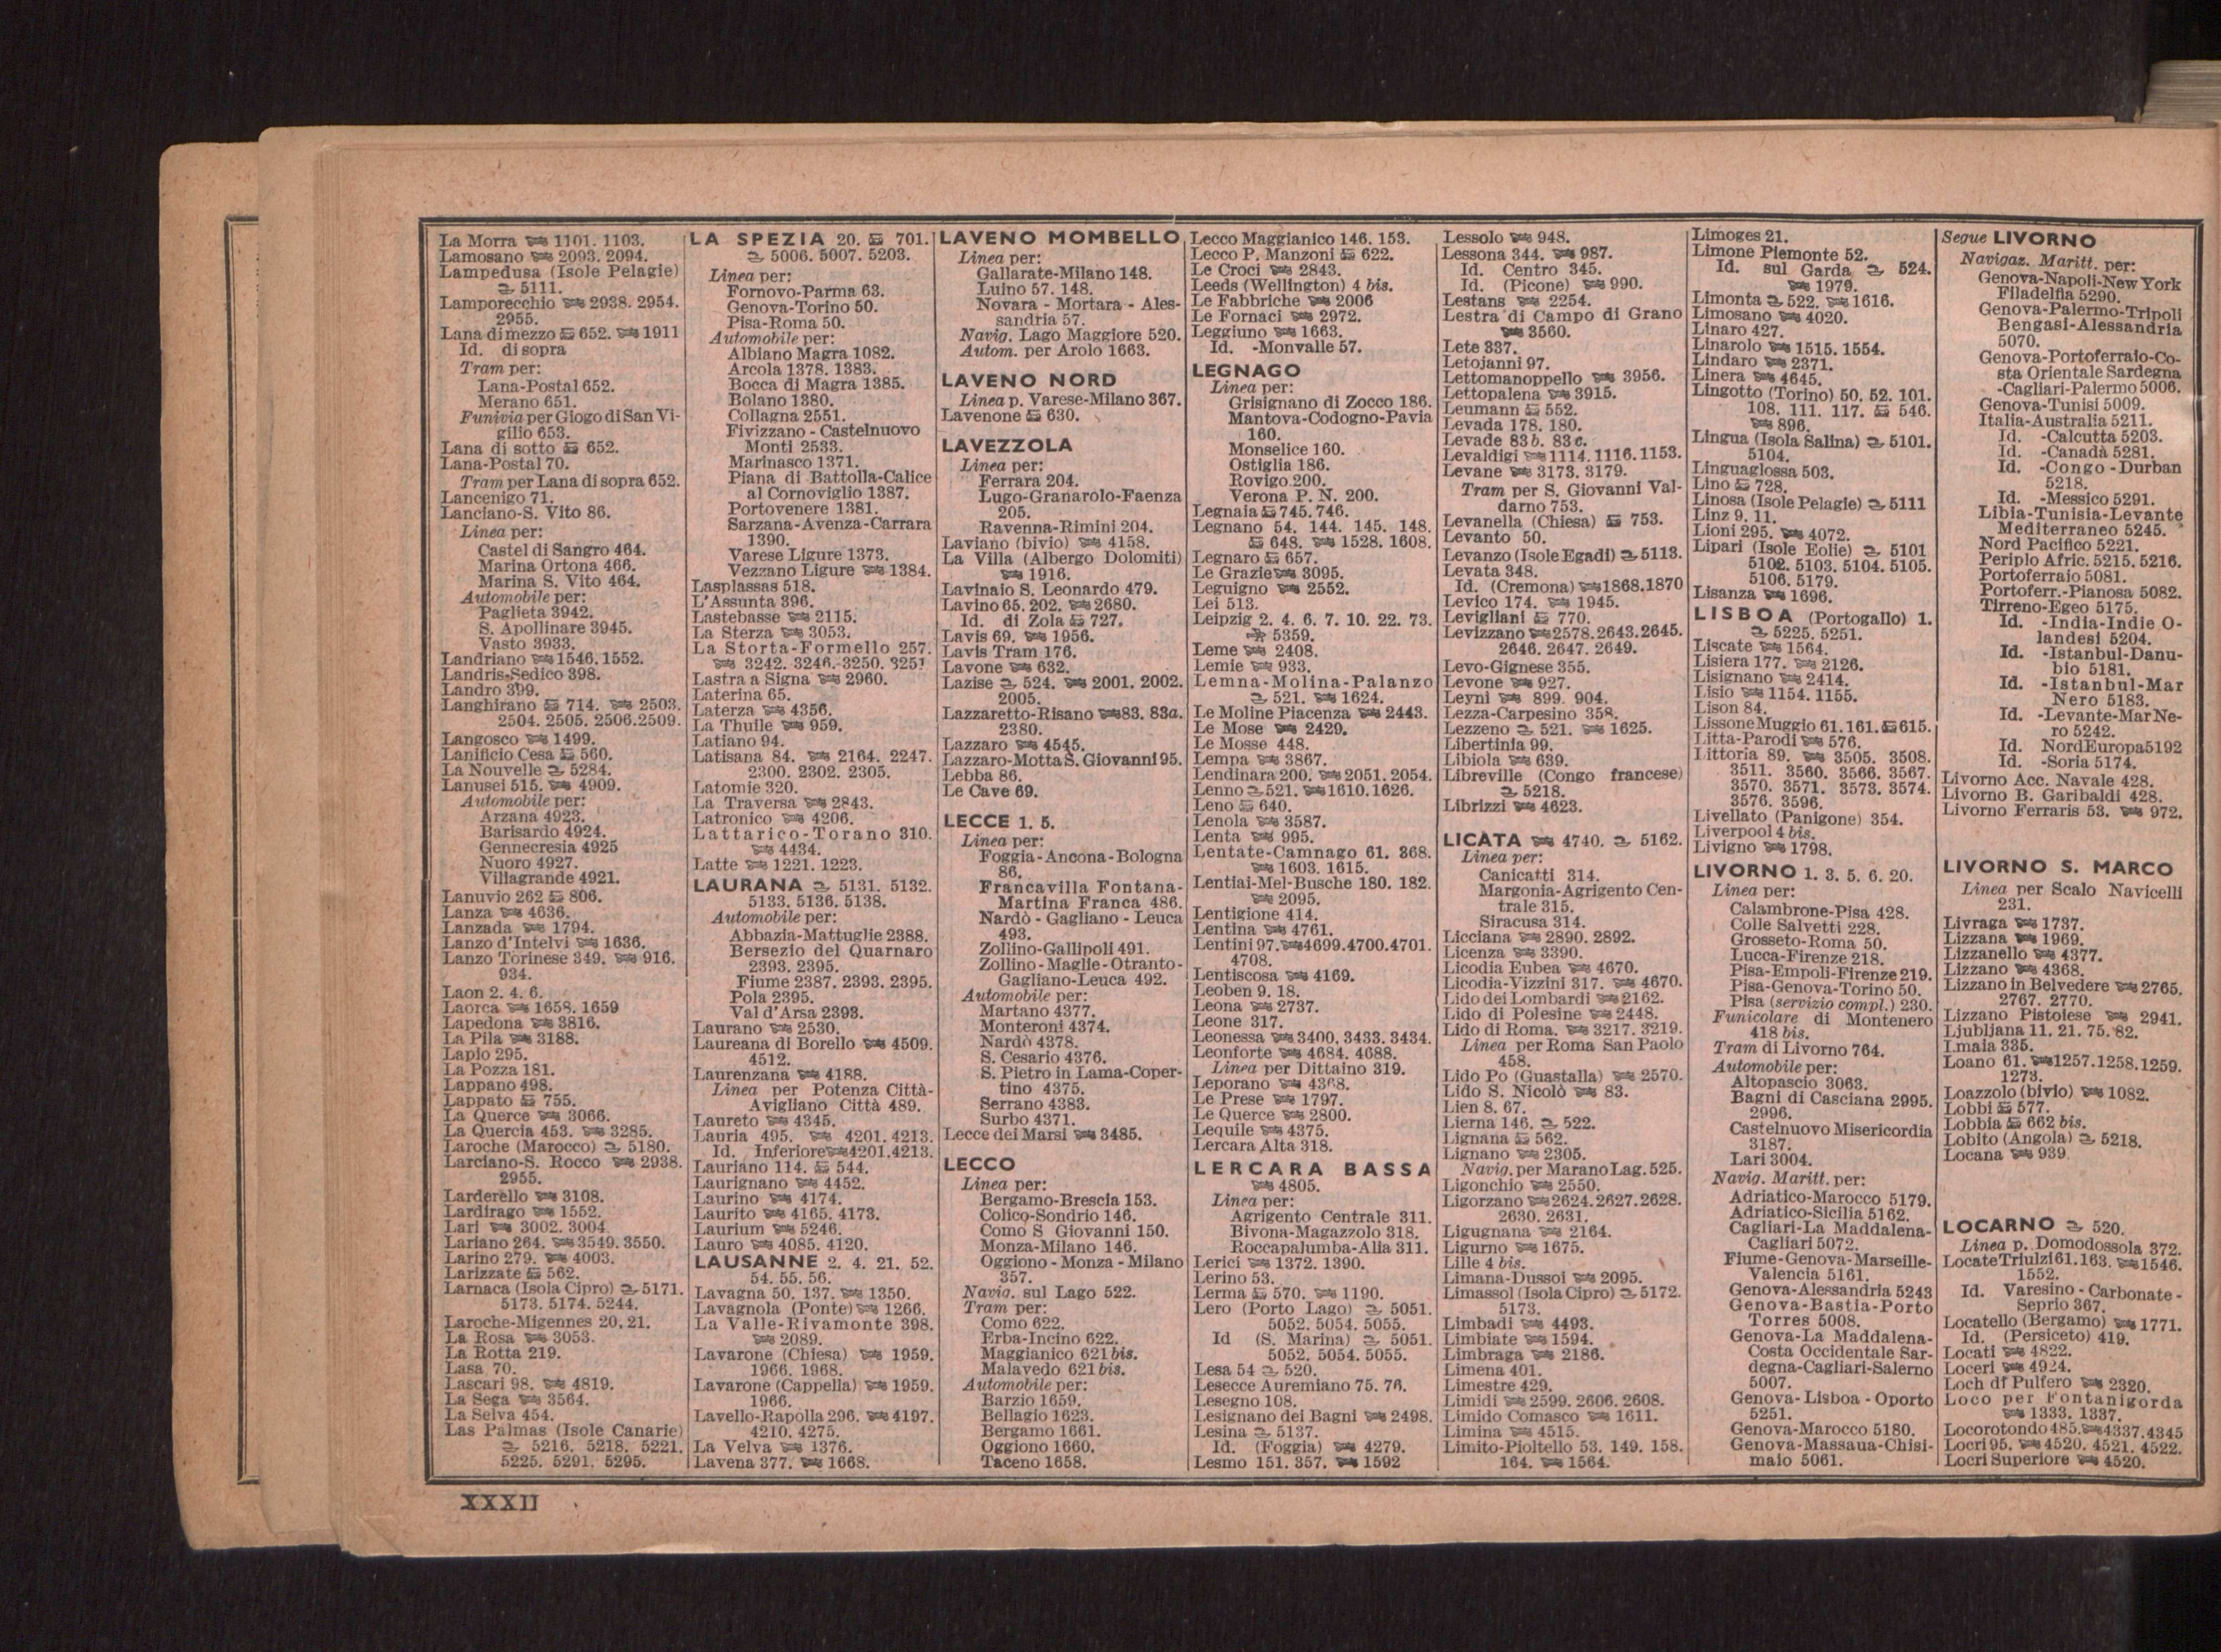 La Morra 1101. 1103.
Lamosano 2093. 2094.
Lampedusa (Isole Pelagie)
5111.
Lamporecchio 2938. 2954.
2955.
Lana di mezzo 652. 1911
Id. di sopra
Tram per:
Lana-Postal 652.
Merano 651.
Funivia per Giogo di San Vi-
gilio 653.
Lana di sotto 652.
Lana-Postal 70.
Tram per Lana di sopra 652.
Lancenigo 71.
Lanciano-S. Vito 86.
Linea per:
Castel di Sangro 464.
Marina Ortona 466.
Marina S. Vito 464.
Automobile per:
Paglieta 3942.
S. Apollinare 3945.
Vasto 3933.
Landriano 1546. 1552.
Landris-Sedico 398.
Landro 399.
Langhirano 714. 2503.
2504. 2505. 2506. 2509.
Langosco 1499.
Lanificio Cesa 560.
La Nouvelle 5284.
Lanusei 515. 4909.
Automobile per:
Arzana 4923.
Barisardo 4924.
Gennecresia 4925
Nuoro 4927.
Villagrande 4921.
Lanuvio 262 806.
Lanza 4636.
Lanzada 1794.
Lanzo d'Intelvi 1636.
Lanzo Torinese 349. 916.
934.
Laon 2. 4. 6.
Laorca 1658. 1659
Lapedona 3816.
La Pila 3188.
Lapio 295.
La Pozza 181.
Lappano 498.
Lappato 755.
La Querce 3066.
La Quercia 453. 3285.
Laroche (Marocco) 5180.
Larciano-S. Rocco 2938.
2955.
Larderello 3108.
Lardirago 1552.
Lari 3002. 3004.
Lariano 264. 3549. 3550.
Larino 279. 4003.
Larizzate 562.
Larnaca (Isola Cipro) 5171.
5173. 5174. 5244.
Laroche-Migennes 20. 21.
La Rosa 3053.
La Rotta 219.
Lasa 70.
Lascari 98. 4819.
La Sega 3564.
La Selva 454.
Las Palmas (Isole Canarie)
5216. 5218. 5221.
5225. 5291. 5295.
LA SPEZIA 20. 701.
5006. 5007. 5203.
Linea per:
Fornovo-Parma 63.
Genova-Torino 50.
Pisa-Roma 50.
Automobile per:
Albiano Magra 1082.
Arcola 1378. 1383.
Bocca di Magra 1385.
Bolano 1380.
Collagna 2551.
Fivizzano - Castelnuovo
Monti 2533.
Marinasco 1371.
Piana di Battolla-Calice
al Cornoviglio 1387.
Portovenere 1381.
Sarzana-Avenza-Carrara
1390.
Varese Ligure 1373.
Vezzano Ligure 1384.
Lasplassas 518.
L'Assunta 396.
Lastebasse 2115.
La Sterza 3053.
La Storta-Formello 257.
3242. 3246. 3250. 3251
Lastra a Signa 2960.
Laterina 65.
Laterza 4356.
La Thuile 959.
Latiano 94.
Latisana 84. 2164. 2247.
2300. 2302. 2305.
Latomie 320.
La Traversa 2843.
Latronico 4206.
Lattarico-Torano 310.
4434.
Latte 1221. 1223.
LAURANA 5131. 5132.
5133. 5136. 5138.
Automobile per:
Abbazia-Mattuglie 2388.
Bersezio del Quarnaro
2393. 2395.
Fiume 2387. 2393. 2395.
Pola 2395.
Val d'Arsa 2393.
Laurano 2530.
Laureana di Borello 4509.
4512.
Laurenzana 4188.
Linea per Potenza Città-
Avigliano Città 489.
Laureto 4345.
Lauria 495. 4201. 4213.
Id. Inferiore 4201. 4213.
Lauriano 114. 544.
Laurignano 4452.
Laurino 4174.
Laurito 4165. 4173.
Laurium 5246.
Lauro 4085. 4120.
LAUSANNE 2. 4. 21. 52.
54. 55. 56.
Lavagna 50. 137. 1350.
Lavagnola (Ponte) 1266.
La Valle-Rivamonte 398.
2089.
Lavarone (Chiesa) 1959.
1966. 1968.
Lavarone (Cappella) 1959.
1966.
Lavello-Rapolla 296. 4197.
4210. 4275.
La Velva 1376.
Lavena 377. 1668.
LAVENO MOMBELLO
Linea per:
Gallarate-Milano 148.
Luino 57. 148.
Novara - Mortara - Ales-
sandria 57.
Navig. Lago Maggiore 520.
Autom. per Arolo 1663.
LAVENO NORD
Linea p. Varese-Milano 367.
Lavenone 630.
LAVEZZOLA
Linea per:
Ferrara 204.
Lugo-Granarolo-Faenza
205.
Ravenna-Rimini 204.
Laviano (bivio) 4158.
La Villa (Albergo Dolomiti)
1916.
Lavinaio S. Leonardo 479.
Lavino 65. 202. 2680.
Id. di Zola 727.
Lavis 69. 1956.
Lavis Tram 176.
Lavone 632.
Lazise 524. 2001. 2002.
2005.
Lazzaretto-Risano 83. 83a.
2380.
Lazzaro 4545.
Lazzaro-Motta S. Giovanni 95.
Lebba 86.
Le Cave 69.
LECCE 1. 5.
Linea per:
Foggia-Ancona-Bologna
86.
Francavilla Fontana-
Martina Franca 486.
Nardò - Gagliano - Leuca
493.
Zollino-Gallipoli 491.
Zollino-Maglie-Otranto-
Gagliano-Leuca 492.
Automobile per:
Martano 4377.
Monteroni 4374.
Nardò 4378.
S. Cesario 4376.
S. Pietro in Lama-Coper-
tino 4375.
Serrano 4383.
Surbo 4371.
Lecce dei Marsi 3485.
LECCO
Linea per:
Bergamo-Brescia 153.
Colico-Sondrio 146.
Como S Giovanni 150.
Monza-Milano 146.
Oggiono - Monza - Milano
357.
Navig. sul Lago 522.
Tram per:
Como 622.
Erba-Incino 622.
Maggianico 621 bis.
Malavedo 621 bis.
Automobile per:
Barzio 1659.
Bellagio 1623.
Bergamo 1661.
Oggiono 1660.
Taceno 1658.
Lecco Maggianico 146. 153.
Lecco P. Manzoni 622.
Le Croci 2843.
Leeds (Wellington) 4 bis.
Le Fabbriche 2006
Le Fornaci 2972.
Leggiuno 1663.
Id. -Monvalle 57.
LEGNAGO
Linea per:
Grisignano di Zocco 186.
Mantova-Codogno-Pavia
160.
Monselice 160.
Ostiglia 186.
Rovigo 200.
Verona P. N. 200.
Legnaia 745. 746.
Legnano 54. 144. 145. 148.
648. 1528. 1608.
Legnaro 657.
Le Grazie 3095.
Leguigno 2552.
Lei 513.
Leipzig 2. 4. 6. 7. 10. 22. 73.
5359.
Leme 2408.
Lemie 933.
Lemna-Molina-Palanzo
521. 1624.
Le Moline Piacenza 2443.
Le Mose 2429.
Le Mosse 448.
Lempa 3867.
Lendinara 200. 2051. 2054.
Lenno 521. 1610. 1626.
Leno 640.
Lenola 3587.
Lenta 995.
Lentate-Camnago 61. 368.
1603. 1615.
Lentiai-Mel-Busche 180. 182.
2095.
Lentigione 414.
Lentina 4761.
Lentini 97. 4699. 4700. 4701.
4708.
Lentiscosa 4169.
Leoben 9. 18.
Leona 2737.
Leone 317.
Leonessa 3400. 3433. 3434.
Leonforte 4684. 4688.
Linea per Dittaino 319.
Leporano 4368.
Le Prese 1797.
Le Querce 2800.
Lequile 4375.
Lercara Alta 318.
LERCARA BASSA
4805.
Linea per:
Agrigento Centrale 311.
Bivona-Magazzolo 318.
Roccapalumba-Alia 311.
Lerici 1372. 1390.
Lerino 53.
Lerma 570. 1190.
Lero (Porto Lago) 5051.
5052. 5054. 5055.
Id (S. Marina) 5051.
5052. 5054. 5055.
Lesa 54 520.
Lesecce Auremiano 75. 76.
Lesegno 108.
Lesignano dei Bagni 2498.
Lesina 5137.
Id. (Foggia) 4279.
Lesmo 151. 357. 1592
Lessolo 948.
Lessona 344. 987.
Id. Centro 345.
Id. (Picone) 990.
Lestans 2254.
Lestra di Campo di Grano
3560.
Lete 337.
Letojanni 97.
Lettomanoppello 3956.
Lettopalena 3915.
Leumann 552.
Levada 178. 180.
Levade 83b. 83c.
Levaldigi 1114. 1116. 1153.
Levane 3173. 3179.
Tram per S. Giovanni Val-
darno 753.
Levanella (Chiesa) 753.
Levanto 50.
Levanzo (Isole Egadi) 5113.
Levata 348.
Id. (Cremona) 1868. 1870
Levico 174. 1945.
Levigliani 770.
Levizzano 2578. 2643. 2645.
2646. 2647. 2649.
Levo-Gignese 355.
Levone 927.
Leyni 899. 904.
Lezza-Carpesino 358.
Lezzeno 521. 1625.
Libertinia 99.
Libiola 639.
Libreville (Congo francese)
5218.
Librizzi 4623.
LICATA 4740. 5162.
Linea per:
Canicattì 314.
Margonia-Agrigento Cen-
trale 315.
Siracusa 314.
Licciana 2890. 2892.
Licenza 3390.
Licodia Eubea 4670.
Licodia-Vizzini 317. 4670.
Lido dei Lombardi 2162.
Lido di Polesine 2448.
Lido di Roma. 3217. 3219.
Linea per Roma San Paolo
458.
Lido Po (Guastalla) 2570.
Lido S. Nicolò 83.
Lien 8. 67.
Lierna 146. 522.
Lignana 562.
Lignano 2305.
Navig. per Marano Lag. 525.
Ligonchio 2550.
Ligorzano 2624. 2627. 2628.
2630. 2631.
Ligugnana 2164.
Ligurno 1675.
Lille 4 bis.
Limana-Dussoi 2095.
Limassol (Isola Cipro) 5172.
5173.
Limbadi 4493.
Limbiate 1594.
Limbraga 2186.
Limena 401.
Limestre 429.
Limidi 2599. 2606. 2608.
Limido Comasco 1611.
Limina 4515.
Limito-Pioltello 53. 149. 158.
164. 1564.
Limoges 21.
Limone Piemonte 52.
Id. sul Garda 524.
1979.
Limonta 522. 1616.
Limosano 4020.
Linaro 427.
Linarolo 1515. 1554.
Lindaro 2371.
Linera 4645.
Lingotto (Torino) 50. 52. 101.
108. 111. 117. 546.
896.
Lingua (Isola Salina) 5101.
5104.
Linguaglossa 503.
Lino 728.
Linosa (Isole Pelagie) 5111
Linz 9. 11.
Lioni 295. 4072.
Lipari (Isole Eolie) 5101
5102. 5103. 5104. 5105.
5106. 5179.
Lisanza 1696.
LISBOA (Portogallo) 1.
5225. 5251.
Liscate 1564.
Lisiera 177. 2126.
Lisignano 2414.
Lisio 1154. 1155.
Lison 84.
Lissone Muggio 61. 161. 615.
Litta-Parodi 576.
Littoria 89. 3505. 3508.
3511. 3560. 3566. 3567.
3570. 3571. 3573. 3574.
3576. 3596.
Livellato (Panigone) 354.
Liverpool 4 bis.
Livigno 1798.
LIVORNO 1. 3. 5. 6. 20.
Linea per:
Calambrone-Pisa 428.
Colle Salvetti 228.
Grosseto-Roma 50.
Lucca-Firenze 218.
Pisa-Empoli-Firenze 219.
Pisa-Genova-Torino 50.
Pisa (servizio compl.) 230.
Funicolare di Montenero
418 bis.
Tram di Livorno 764.
Automobile per:
Altopascio 3063.
Bagni di Casciana 2995.
2996.
Castelnuovo Misericordia
3187.
Lari 3004.
Navig. Maritt. per:
Adriatico-Marocco 5179.
Adriatico-Sicilia 5162.
Cagliari-La Maddalena-
Cagliari 5072.
Fiume-Genova-Marseille-
Valencia 5161.
Genova-Alessandria 5243
Genova-Bastia-Porto
Torres 5008.
Genova-La Maddalena-
Costa Occidentale Sar-
degna-Cagliari-Salerno
5007.
Genova-Lisboa-Oporto
5251.
Genova-Marocco 5180.
Genova-Massaua-Chisi-
maio 5061.
Segue LIVORNO
Navigaz. Maritt. per:
Genova-Napoli-New York
Filadelfia 5290.
Genova-Palermo-Tripoli
Bengasi-Alessandria
5070.
Genova-Portoferraio-Co-
sta Orientale Sardegna
-Cagliari-Palermo 5006.
Genova-Tunisi 5009.
Italia-Australia 5211.
Id. -Calcutta 5203.
Id. -Canadà 5281.
Id. -Congo-Durban
5218.
Id. -Messico 5291.
Libia-Tunisia-Levante
Mediterraneo 5245.
Nord Pacifico 5221.
Periplo Afric. 5215. 5216.
Portoferraio 5081.
Portoferr.-Pianosa 5082.
Tirreno-Egeo 5175.
Id. -India-Indie O-
landesi 5204.
Id. -Istanbul-Danu-
bio 5181.
Id. -Istanbul-Mar
Nero 5183.
Id. -Levante-Mar Ne-
ro 5242.
Id. Nord Europa 5192
Id. -Soria 5174.
Livorno Acc. Navale 428.
Livorno B. Garibaldi 428.
Livorno Ferraris 53. 972.
LIVORNO S. MARCO
Linea per Scalo Navicelli
231.
Livraga 1737.
Lizzana 1969.
Lizzanello 4377.
Lizzano 4368.
Lizzano in Belvedere 2765.
2767. 2770.
Lizzano Pistoiese 2941.
Ljubljana 11. 21. 75. 82.
Lmaia 335.
Loano 61. 1257. 1258. 1259.
1273.
Loazzolo (bivio) 1082.
Lobbi 577.
Lobbia 662 bis.
Lobito (Angola) 5218.
Locana 939.
LOCARNO 520.
Linea p. Domodossola 372.
Locate Triulzi 61. 163. 1546.
1552.
Id. Varesino-Carbonate-
Seprio 367.
Locatello (Bergamo) 1771.
Id. (Persiceto) 419.
Locati 4822.
Loceri 4924.
Loch di Pulfero 2320.
Loco per Fontanigorda
1333. 1337.
Locorotondo 485. 4337. 4345
Locri 95. 4520. 4521. 4522.
Locri Superiore 4520.
XXXII